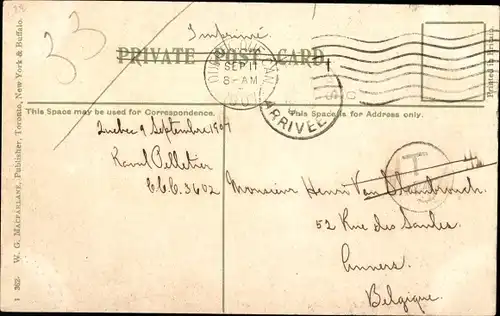 33
Imprimé
PRIVATE POST CARD
QUEBEC, QUE CAN.
SEP 11
8-AM
ARRIVÉE
This Space may be used for Correspondence.
This Space is for Address only.
Quebec 9 Septembre 1907
Raoul Pelletier
C.C.C. 3602
T
Monsieur Henri Van
52 Rue des Saules.
Anvers
Belgique.
W. G. MACFARLANE, Publisher, Toronto, New York & Buffalo.
Printed in